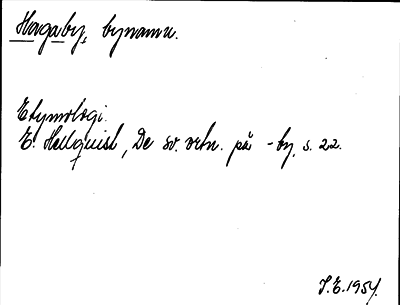 Hagaby, bynamn.
Etymologi.
E. Hellquist, De sv. ortn. på -by, s. 22.
J.E. 1954.